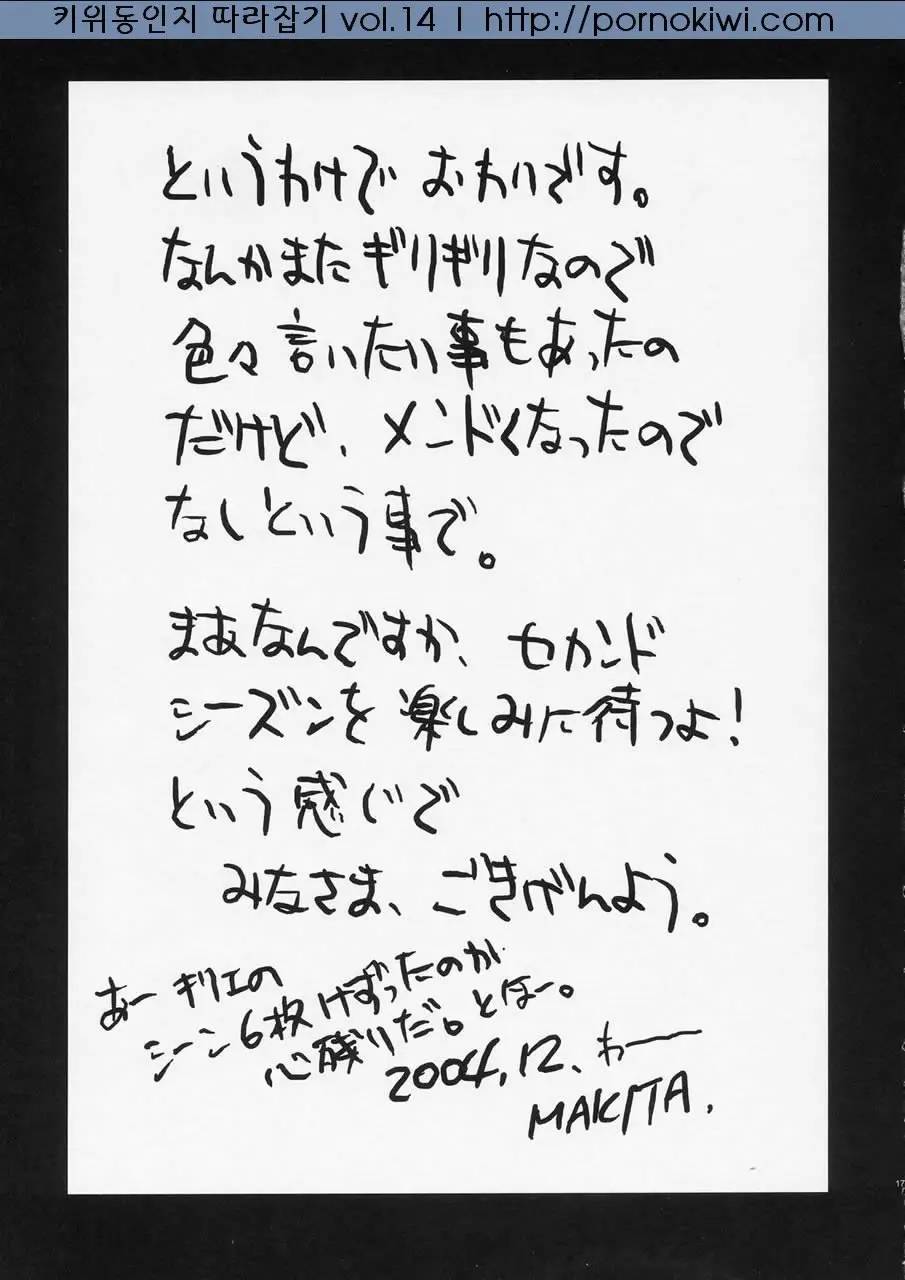 키위동인지 따라잡기 vol.14 | http://pornokiwi.com
というわけで おわりです。
なんかまたギリギリなので
色々言いたい事もあったの
だけど、メンドくなったので
ないという事で。
まあなんですか、セカンド
シーズンを楽しみに待つよ!
という感じで
みなさま、ごきげんよう。
あー キリエの
シーン6枚けずったのが
心残りだ。とほー。
2004.12. わー
MAKITA.
17